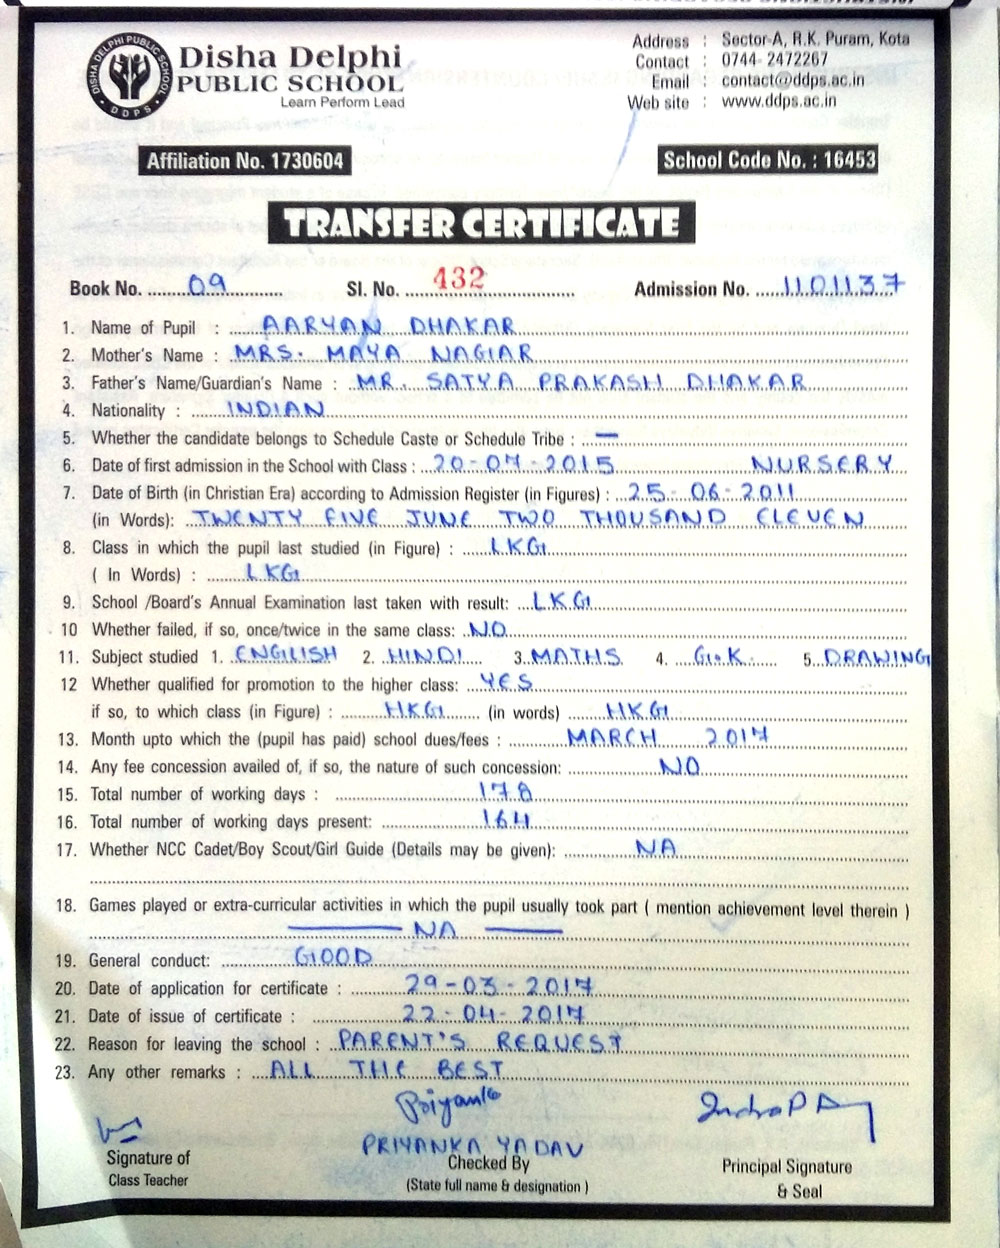 DISHA DELPHI PUBLIC SCHOOL
DDPS
Disha Delphi
PUBLIC SCHOOL
Learn Perform Lead
Address : Sector-A, R.K. Puram, Kota
Contact : 0744- 2472267
Email : contact@ddps.ac.in
Web site : www.ddps.ac.in
Affiliation No. 1730604
School Code No. : 16453
TRANSFER CERTIFICATE
Book No. 09 Sl. No. 432 Admission No. 1101137
1. Name of Pupil : AARYAN DHAKAR
2. Mother's Name : MRS. MAYA NAGAR
3. Father's Name/Guardian's Name : MR. SATYA PRAKASH DHAKAR
4. Nationality : INDIAN
5. Whether the candidate belongs to Schedule Caste or Schedule Tribe : —
6. Date of first admission in the School with Class : 20-07-2015 NURSERY
7. Date of Birth (in Christian Era) according to Admission Register (in Figures) : 25-06-2011
(in Words): TWENTY FIVE JUNE TWO THOUSAND ELEVEN
8. Class in which the pupil last studied (in Figure) : LKG
( In Words) : LKG
9. School /Board's Annual Examination last taken with result: LKG
10 Whether failed, if so, once/twice in the same class: NO
11. Subject studied 1. ENGLISH 2. HINDI 3. MATHS 4. G.K. 5. DRAWING
12 Whether qualified for promotion to the higher class: YES
if so, to which class (in Figure) : HKG (in words) HKG
13. Month upto which the (pupil has paid) school dues/fees : MARCH 2017
14. Any fee concession availed of, if so, the nature of such concession: NO
15. Total number of working days : 178
16. Total number of working days present: 164
17. Whether NCC Cadet/Boy Scout/Girl Guide (Details may be given): NA
18. Games played or extra-curricular activities in which the pupil usually took part ( mention achievement level therein )
— NA —
19. General conduct: GOOD
20. Date of application for certificate : 29-03-2017
21. Date of issue of certificate : 22-04-2017
22. Reason for leaving the school : PARENT'S REQUEST
23. Any other remarks : ALL THE BEST
Priyanka
PRIYANKA YADAV
Signature of
Class Teacher
Checked By
(State full name & designation )
Principal Signature
& Seal